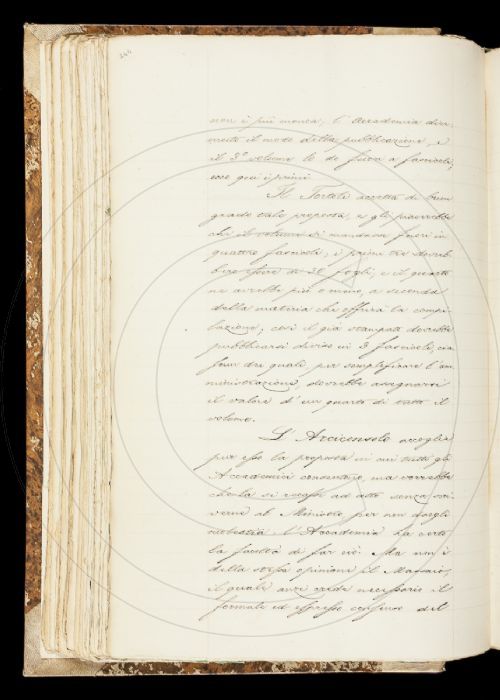 244
non è più monca, l'Accademia dira-
il modo della pubblicazione, e
il 3º volume lo dà fuori a fascicoli,
ecco qui i primi.
Il Tortoli accetta di buon
grado tale proposta, e gli piacerebbe
che il volume si mandasse fuori in
quattro fascicoli; i primi tre dovreb-
bero essere di 20 fogli, e il quarto
ne avrebbe più o meno, a seconda
della materia che offrirà la compi-
lazione; così il già stampato dovrebbe
pubblicarsi diviso in 3 fascicoli, cia-
scun dei quali, per semplificare l'am-
ministrazione, dovrebbe assegnarsi
il valore d'un quarto di tutto il
volume.
L'Arciconsolo accoglie
pur esso la proposta in cui tutti gli
Accademici consentono, ma vorrebbe
che la si recasse ad atto senza scri-
verne al Ministro, per non dargli
molestia. L'Accademia ha certo
la facoltà di far ciò. Ma non è
della stessa opinione il Massaio,
il quale anzi crede necessario il
formale ed espresso consenso del